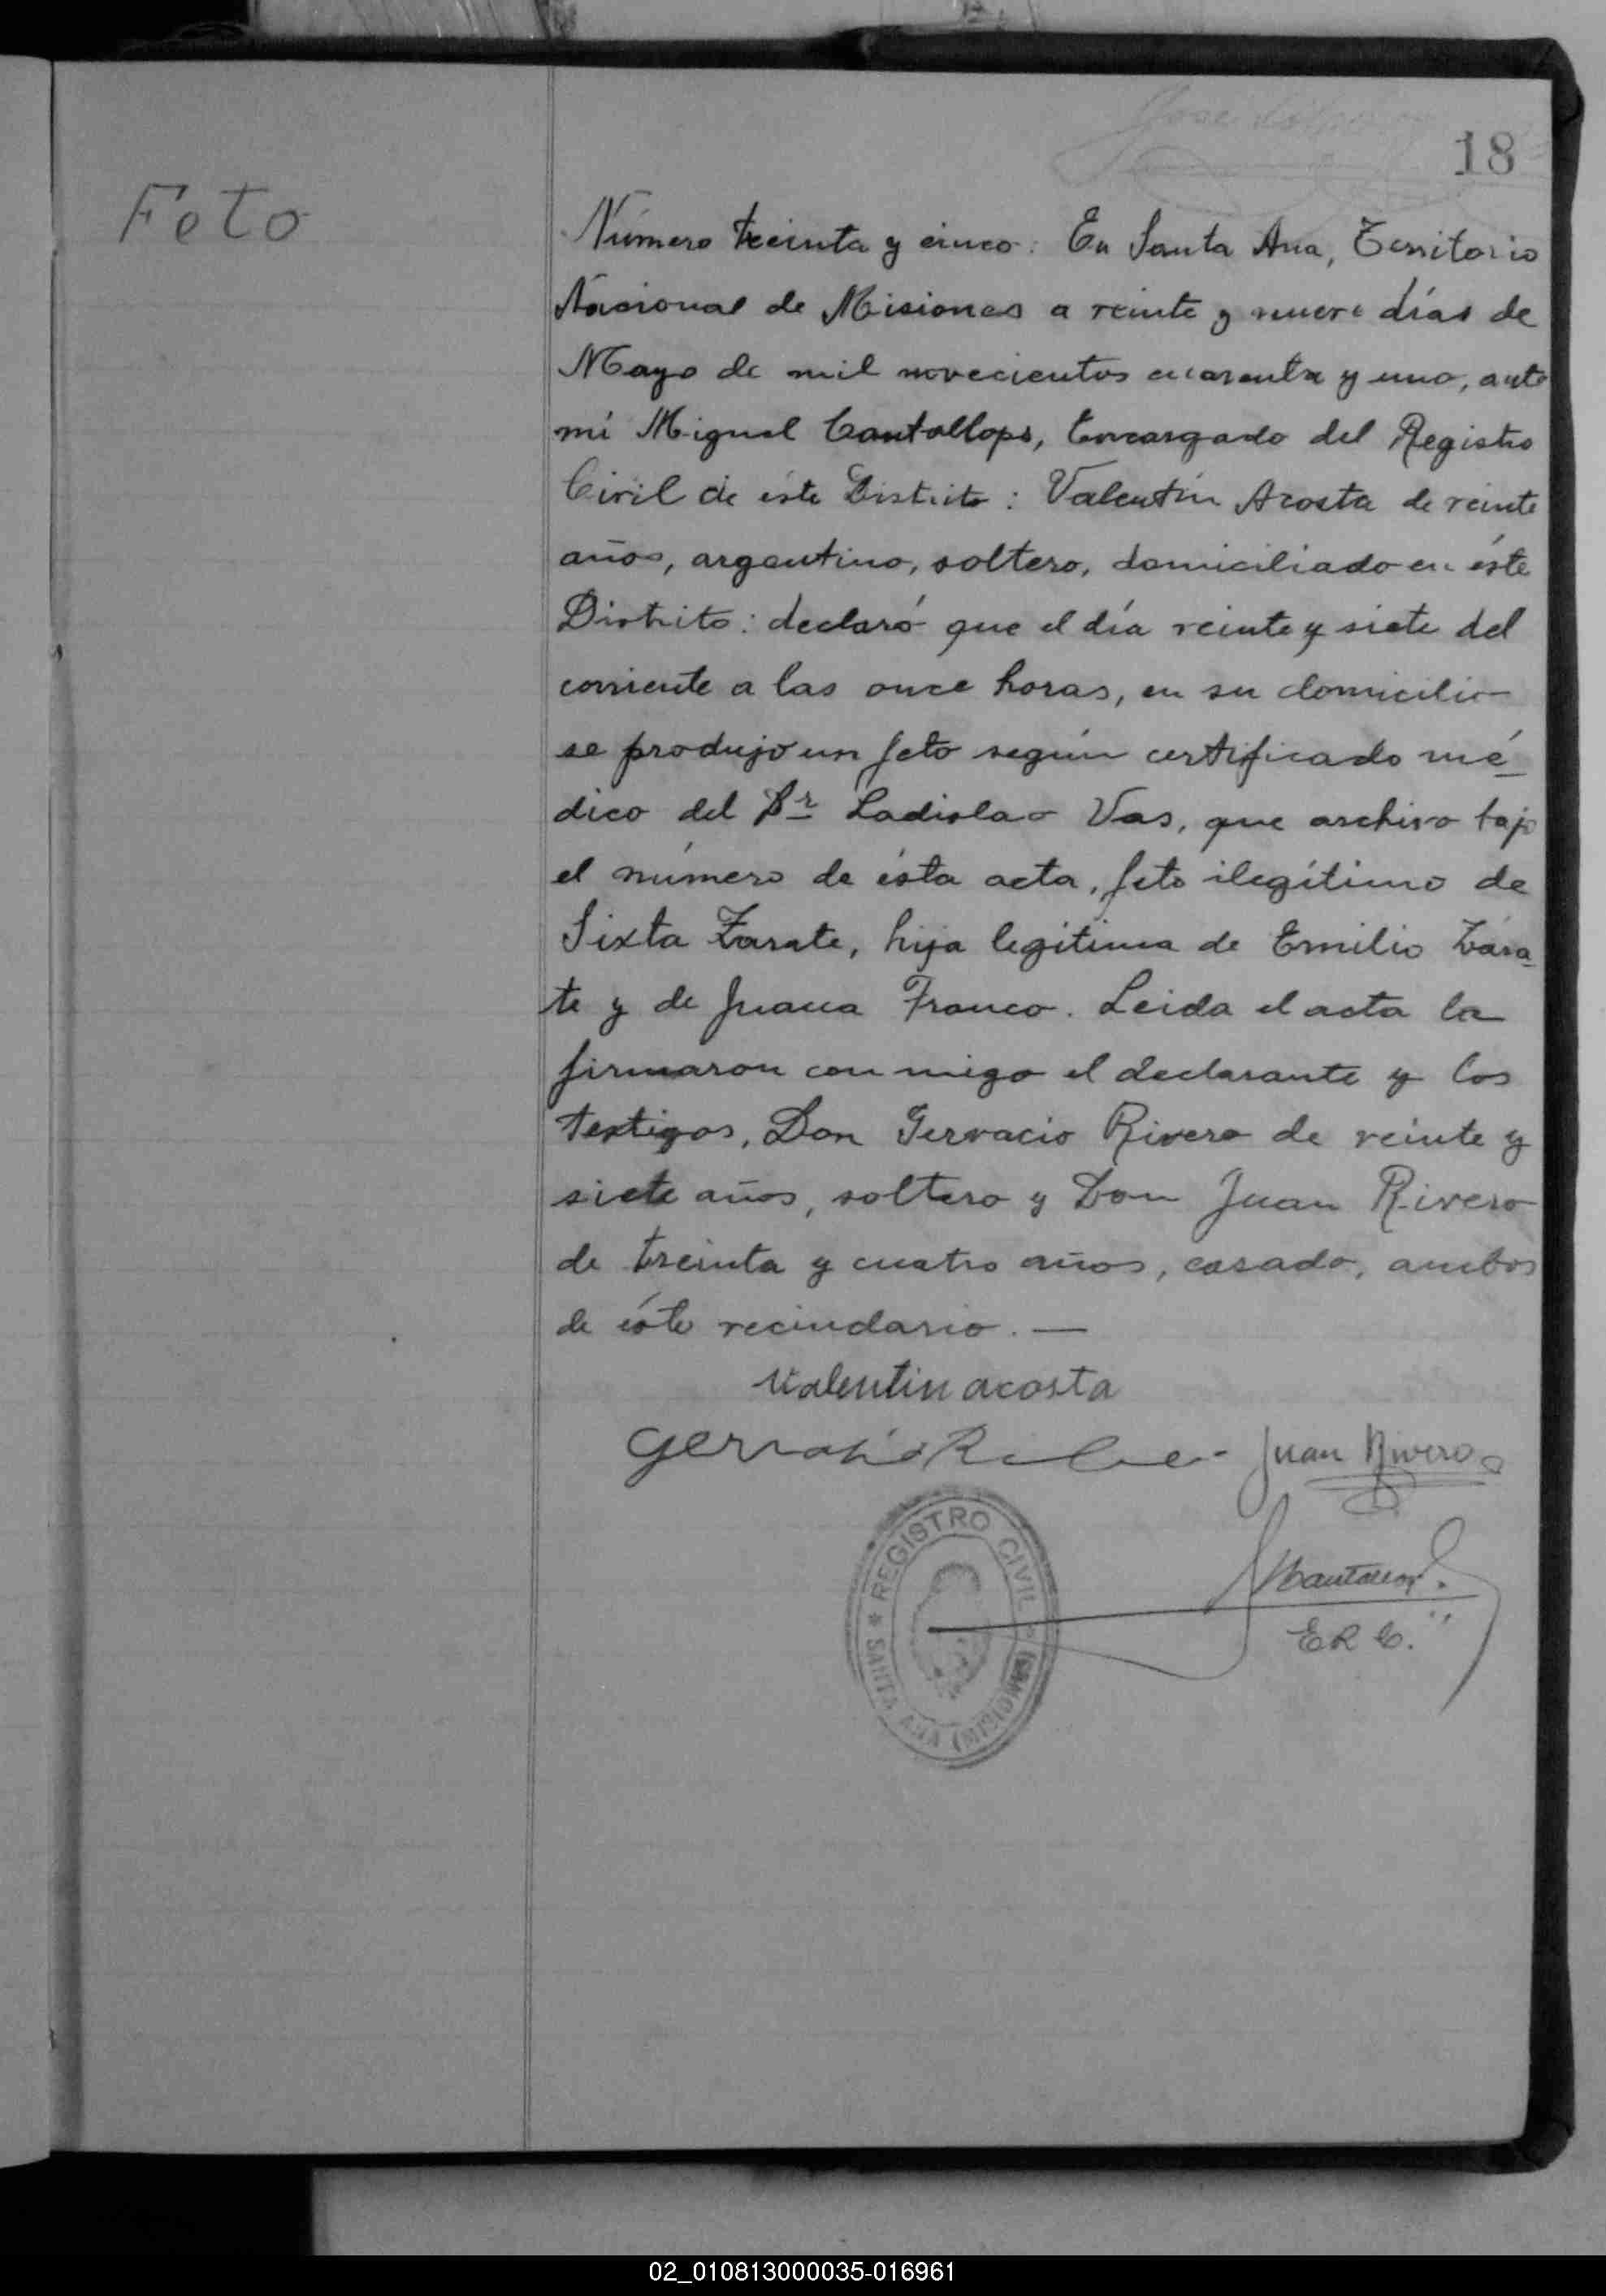 18
Feto
Número treinta y cinco: En Santa Ana, Territorio
Nacional de Misiones a veinte y nueve días de
Mayo de mil novecientos cuarenta y uno, ante
mi Miguel Cantallops, Encargado del Registro
Civil de éste Distrito: Valentín Acosta de veinte
años, argentino, soltero, domiciliado en éste
Distrito: declaró que el día veinte y siete del
corriente a las once horas, en su domicilio
se produjo un feto según certificado mé-
dico del Dr Ladislao Vas, que archivo bajo
el número de ésta acta, feto ilegítimo de
Sixta Zarate, hija legítima de Emilio Zára-
te y de Juana Franco. Leida el acta la
firmaron con migo el declarante y los
testigos, Don Gervacio Rivero de veinte y
siete años, soltero y Don Juan Rivero
de treinta y cuatro años, casado, ambos
de éste vecindario. —
Valentin acosta
Juan Rivero
E R C.
REGISTRO CIVIL
* SANTA ANA (MISIONES)
02_010813000035-016961